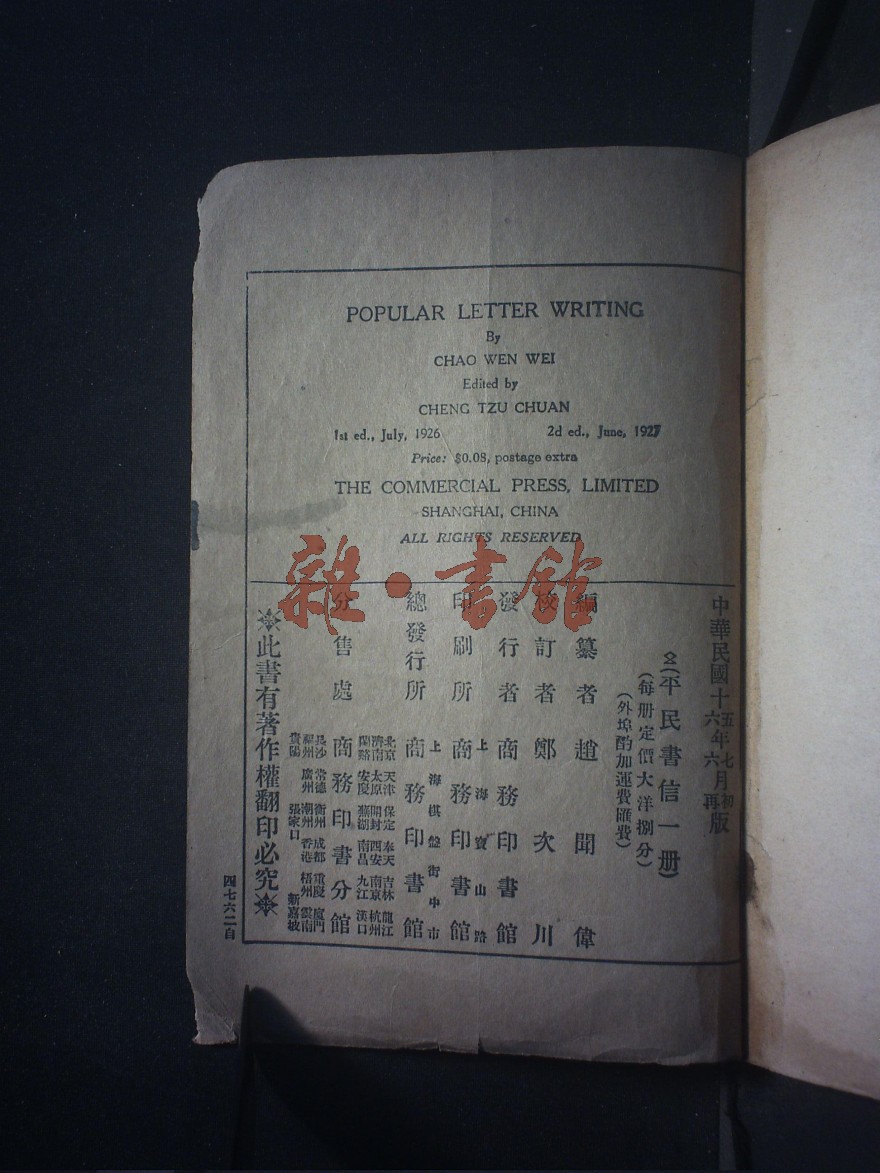 POPULAR LETTER WRITING
By
CHAO WEN WEI
Edited by
CHENG TZU CHUAN
1st ed., July, 1926 2d ed., June, 1927
Price: $0.08, postage extra
THE COMMERCIAL PRESS, LIMITED
SHANGHAI, CHINA
ALL RIGHTS RESERVED
雜·書館
中華民國十五年七月初版
六年六月再
(平民書信一册)
(每册定價大洋捌分)
(外埠酌加運費匯費)
編纂者 趙聞偉
校訂者 鄭次川
發行者 商務印書館
上海寶山路
印刷所 商務印書館
上海棋盤街中市
總發行所 商務印書館
北京 天津 保定 奉天 吉林 龍江
濟南 太原 開封 西安 南京 杭州
蘭谿 安慶 蕪湖 南昌 九江 漢口
分售處 商務印書分館
長沙 常德 衡州 成都 重慶 廈門
福州 廣州 潮州 香港 梧州 雲南
貴陽 張家口 新嘉坡
※此書有著作權翻印必究※
四七六二自